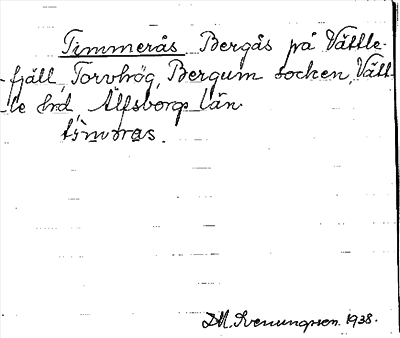 Timmerås Bergås på Vättle-
fjäll, Torvhög, Bergum socken, Vätt-
le hrd Älfsborgs län
tìmǝras.
DM. Svenungsson. 1938.